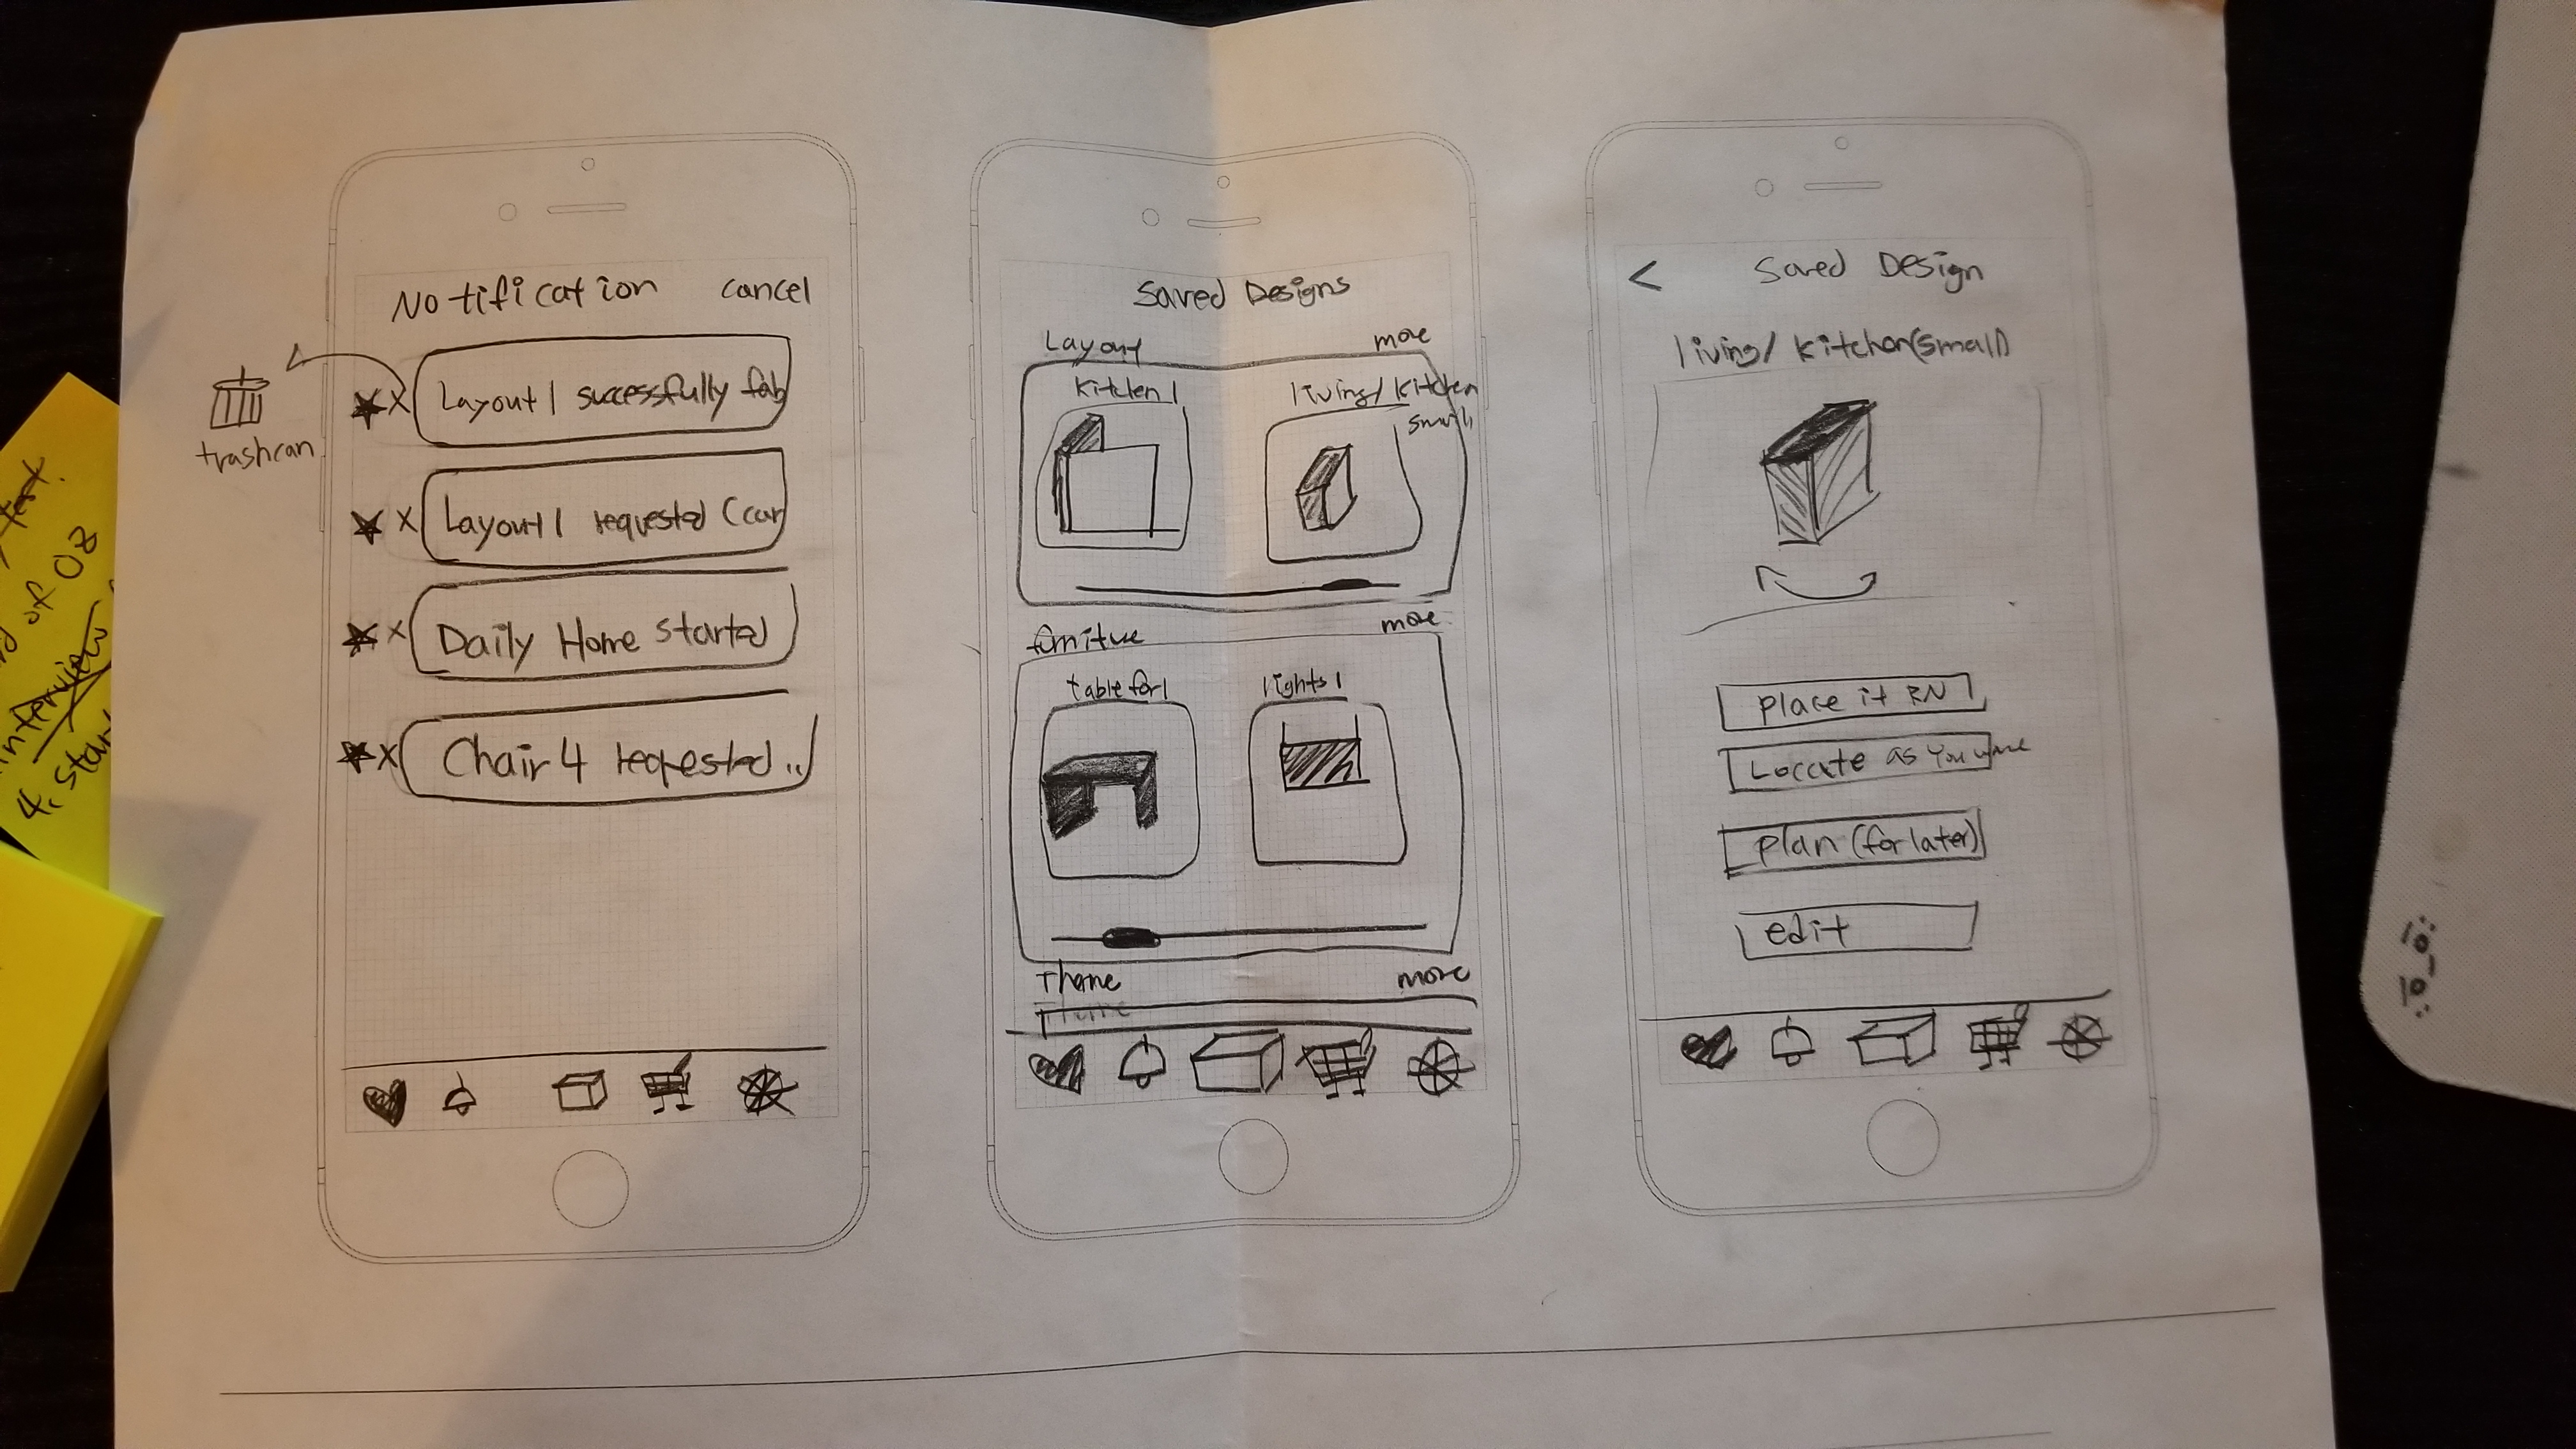 test.
of Oz
interview
4.
trashcan
Notification cancel
x Layout 1 successfully fab
x Layout 1 requested (can
x Daily Home started
x Chair 4 requested
Saved Designs
Layout more
kitchen 1
living/kitchen
furniture more
table for 1
lights 1
Theme more
< Saved Design
living/kitchen(small)
place it RN
Locate as you
plan (for later)
edit